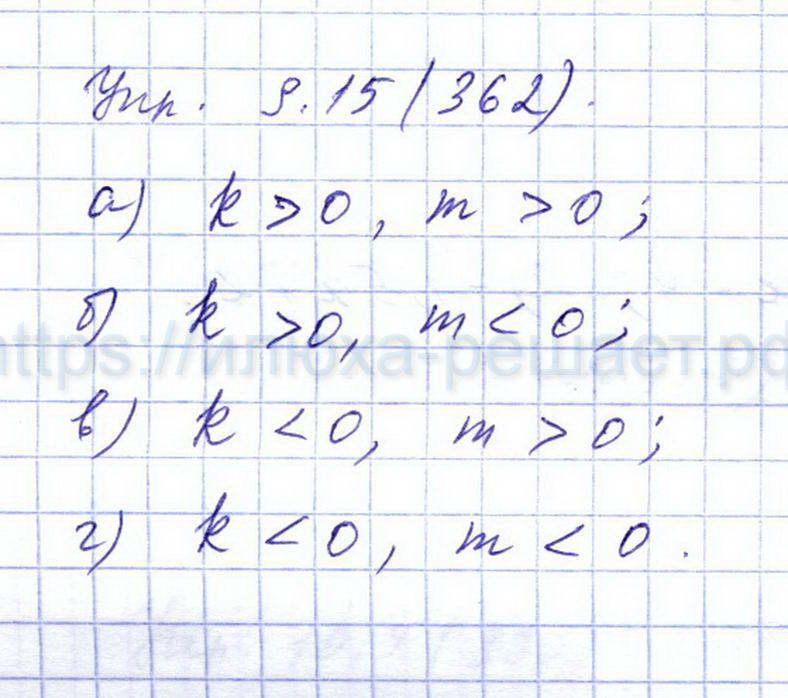 Упр. 9.15 (362).
а) k > 0, m > 0;
б) k > 0, m < 0;
https://илюха-решает.рф
в) k < 0, m > 0;
г) k < 0, m < 0.